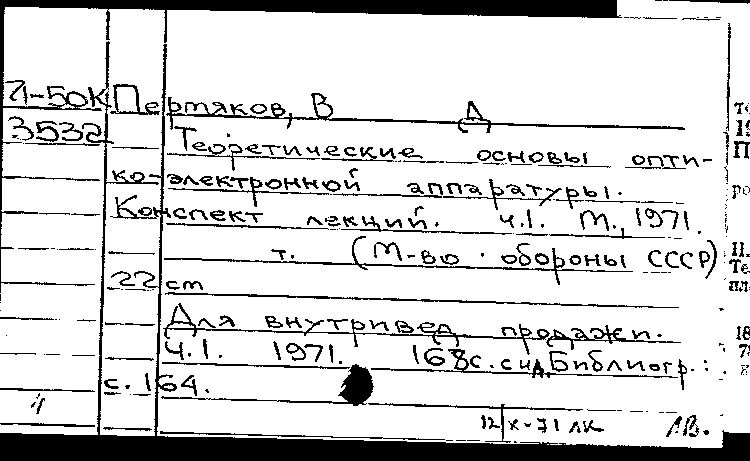 71-50К Пертяков, В Д
3532 Теоретические основы опти-
ко-электронной аппаратуры.
Конспект лекций. ч.1. М., 1971.
т. (М-во обороны СССР)
22 cm
Для внутривед. продажи.
Ч.1. 1971. 168с. с ил. Библиогр.:
с. 164.
12/X-71 ЛК